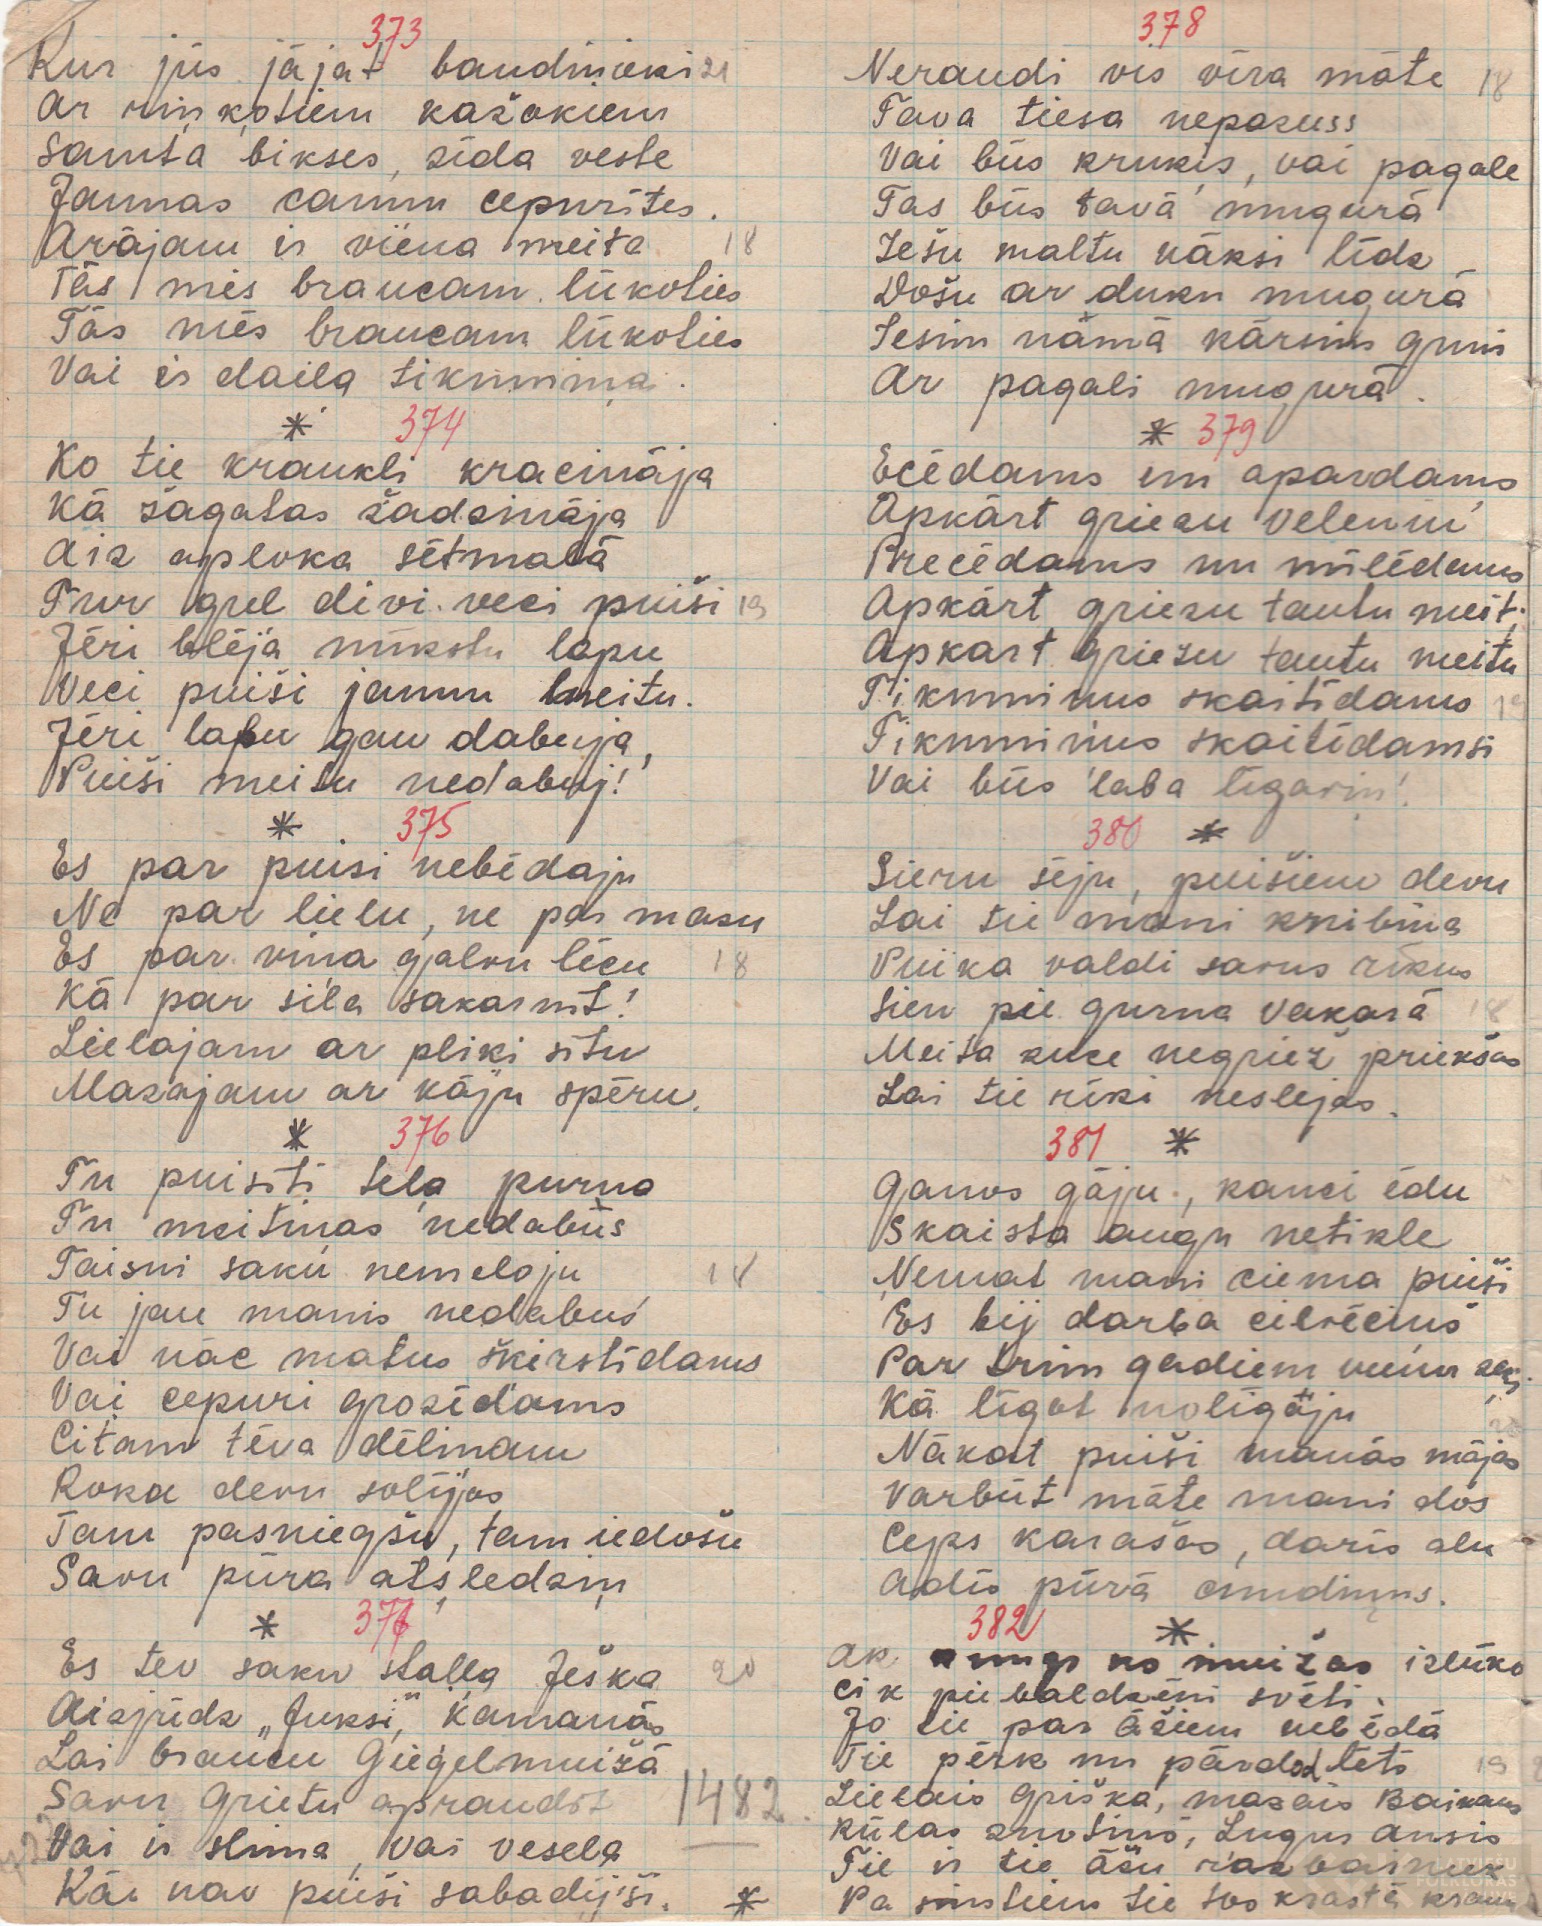 373
Kur jūs jājat baudinieki 21
Ar rinķotiem kažokiem
Samta bikses, zīda veste
Jaunas caunu cepurītes.
Arājam ir viena meita 18
Tās mēs braucam lūkoties
Tās mēs braucam lūkoties
Vai ir daiļa tikumiņa.
* 374
Ko tie kraukļi kracināja
Kā žagatas žadzināja
Aiz aploka sētmalā
Tur guļ divi veci puiši 19
Jēri blēja mīkstu lapu
Veci puiši jaunu meitu.
Jēri lapu gan dabuja,
Puiši meitu nedabuj!
* 375
Es par puisi nebēdaju
Ne par lielu, ne par mazu
Es par viņa galvu lēcu 18
Kā par sila sakarnīt!
Lielajam ar pliķi situ
Mazajam ar kāju spēru.
* 376
Tu puisīti teļa purna
Tu meitiņas nedabūs
Taisni saku nemeloju 18
Tu jau manis nedabus
Vai nāc matus šķirstīdams
Vai cepuri grozīdams
Citam tēva dēliņam
Roka devu solījos
Tam pasniegšu, tam iedošu
Savu pūra atslēdziņ
* 377
Es tev saku staļļa Ješka 20
Aizjūdz „Juksi," kamanās
Lai braucu Giegelmuižā
Savu Grietu apraudzīt 1482
Vai ir slima, vai vesela
Kāi nav puiši sabadījši. *
378
Neraudi vis vīra māte 18
Tava tiesa nepazuss
Vai būs kruķis, vai pagale
Tas būs tavā mugurā
Iešu maltu nāksi līdz
Došu ar duku mugurā
Iesim nāmā kārsim guni
Ar pagali mugurā.
* 379
Ecēdams un apardams
Apkārt griezu velenīū
Precēdams un mīlēdams
Apkārt griezu tautu meit;
Apkart griezu tautu meitu
Tikumiņus skaitīdams 19
Tikumiņus skaitīdamsi
Vai būs laba līgaviņ!
380 *
Sieru sēju, puišiem devu
Lai tie mani knibina
Puika valdi savus rīkus
Sien pie gurna vakarā 18
Meita kuce negriež priekšas
Lai tie rīki neslejas.
381 *
Ganos gāju, kauci ēdu
Skaista augu netikle
Ņemat mani ciema puiši
Es bij darba cilvēciņš
Par trim gadiem vienu zeķi
Kā līgot nolīgāju 20
Nākat puiši manās mājas
Varbūt māte mani dos
Ceps karašas, darīs alu
Adīs pūrā cimdiņus.
382 *
Ak kungs no muižas izlūko
cik piebaldzēni svēti.
Jo tie par āžiem nebēdā
Tie pērk un pārdod lēti 19
Lielais Griška, mazais Baikaus
Kūlas znotiņš, Lugus Ansis
Tie ir tie āžu
Pa simtiem tie tos krastā krauj
LATVIEŠU
FOLKLORAS